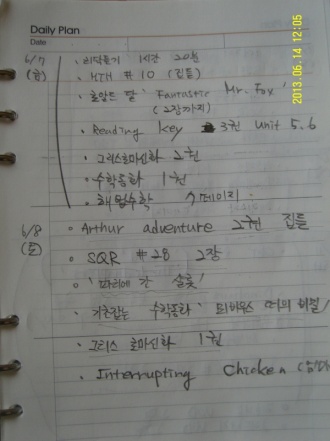 Daily Plan
Date
6/7 · 리딩튜터 1시간 20분
(금) · MTH #10 (집듣)
· 로알드 달 'Fantastic Mr. Fox'
(2장까지)
· Reading key 3권 Unit 5.6
· 그리스로마신화 2권
· 수학동화 1권
· 해법수학 7페이지.
6/8 · Arthur adventure 2권 집듣
(토) · SQR #28 2장
· '파리에 간 샬롯'
· 기초잡는 수학동화 '뫼비우스 띠의 비밀'
· 그리스 로마신화 1권
· Interrupting Chicken
2013.06.14 12:05